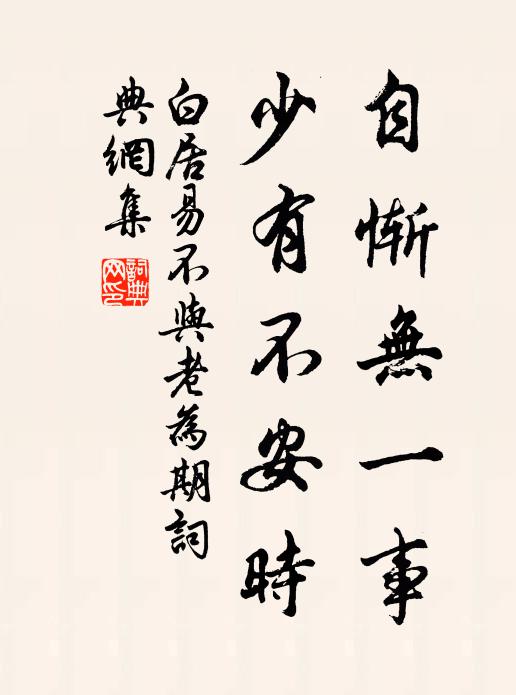 自慚無一事
少有不安時
白居易不與老為期詞
典網集
詞典
网印